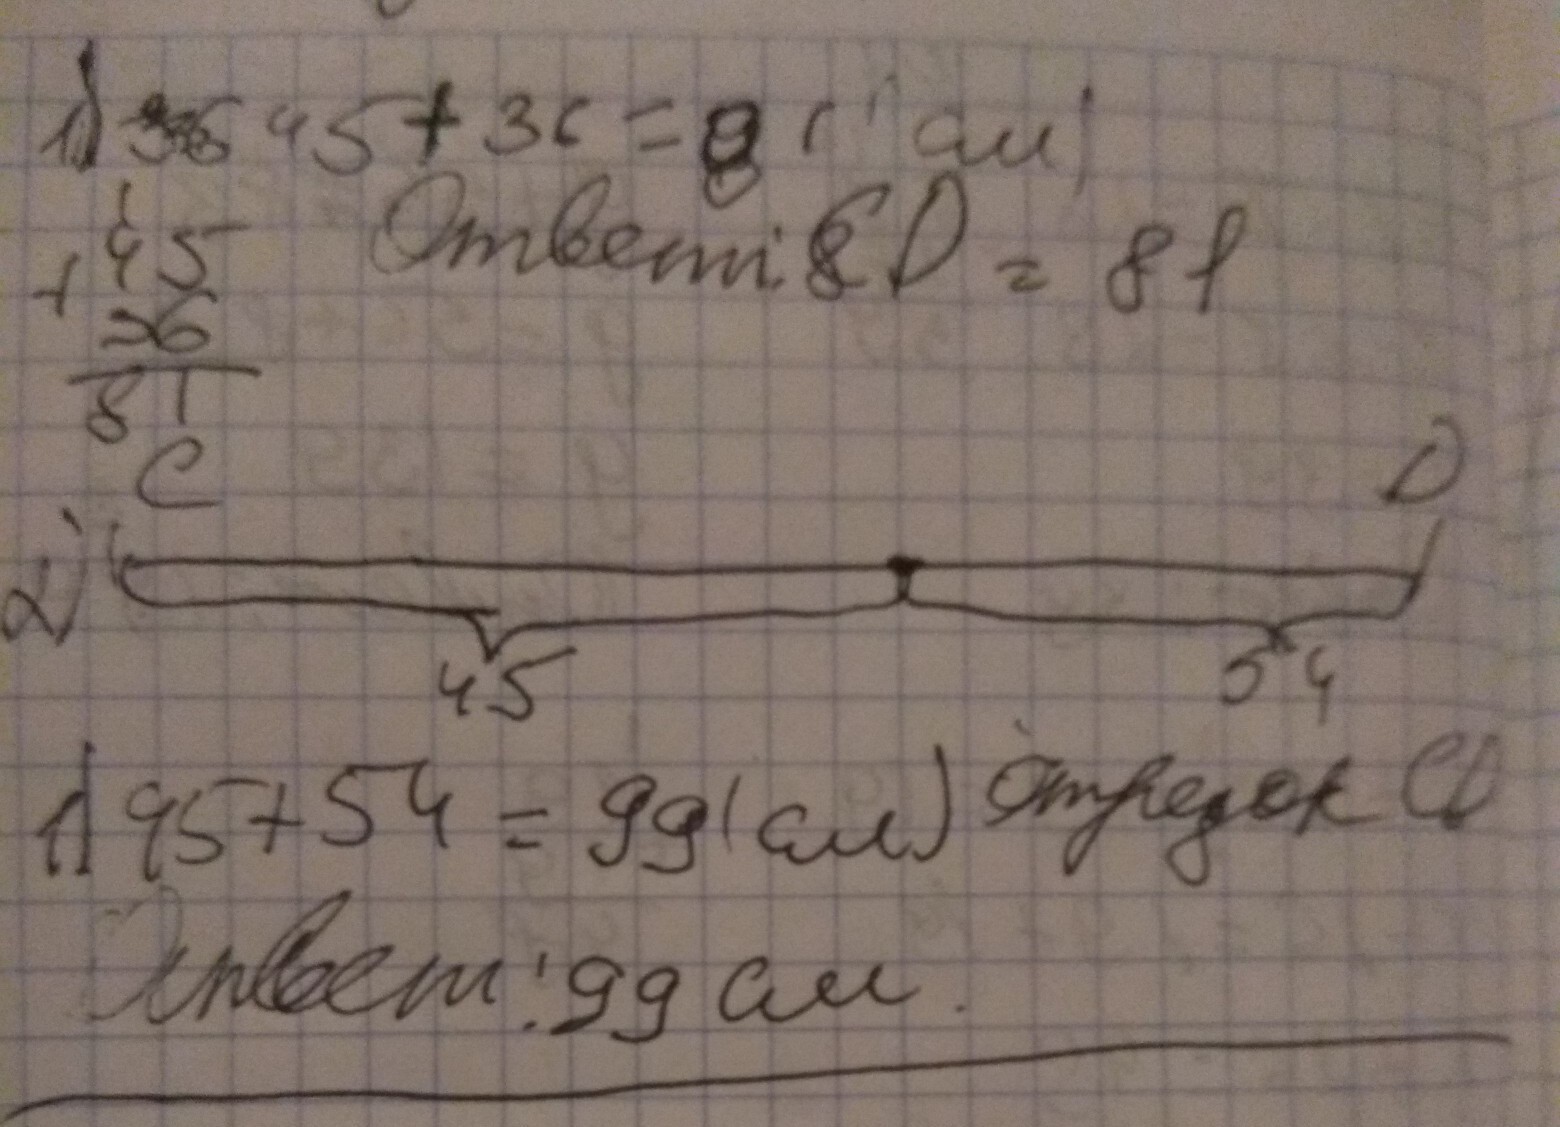 1) 45+36=81(см)
45
+
36
81
Ответ: CD = 81
C D
2)
45 54
1) 45+54=99(см) отрезок CD
Ответ: 99 см.